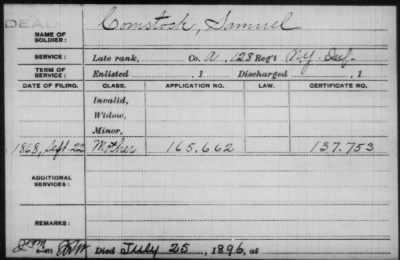 DEAD
NAME OF SOLDIER: Comstock, Samuel
SERVICE: Late rank, Co. A, 128 Reg't N.Y. Inf.
TERM OF SERVICE: Enlisted , 1 Discharged , 1
DATE OF FILING. CLASS. APPLICATION NO. LAW. CERTIFICATE NO.
Invalid,
Widow,
Minor,
1868, Sept 22 Mother 165.662 137.753
ADDITIONAL SERVICES:
REMARKS:
Died July 25, 1896, at